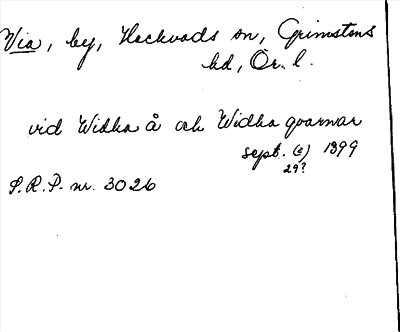 Via, by, Hackvads sn, Grimstens
hd, Ör. l.
vid Widha å och Widha qvarnar
sept. (s) 1399
29?
S.R.P. nr. 3026